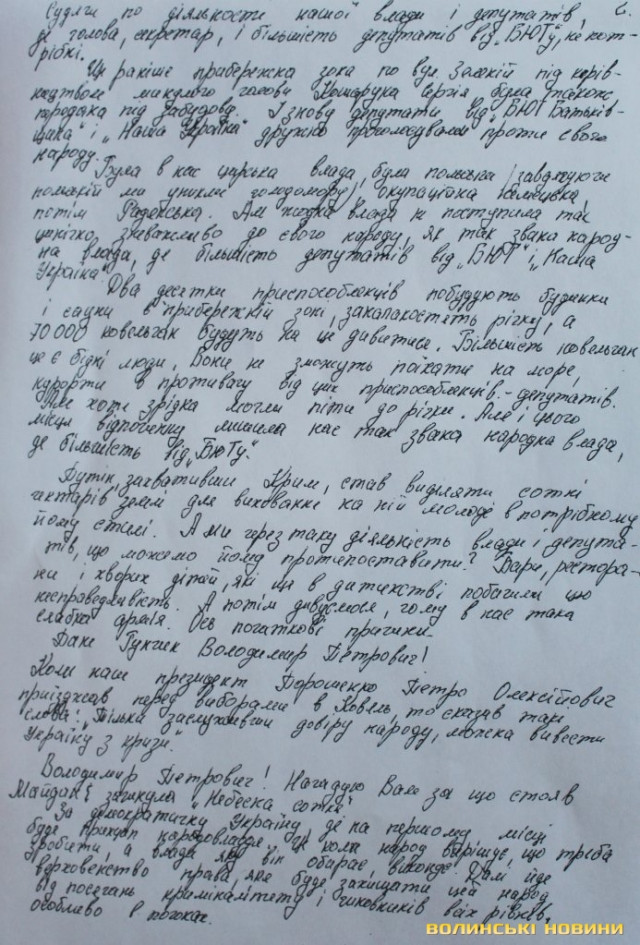 2.
Судячи по діяльности нашої влади і депутатів,
де голова, секретар, і більшість депутатів від „БЮТу, не пот-
рібкі.
Ще раніше прибережна зона по вул. Заложій під керів-
ництвом минулого голови Кошарука Сергія була також
передана під забудову. І знову депутати від „БЮТ Батьків-
щина" і „Наша Україна" дружно проголосували проти свого
народу.
Була в нас царська влада, була польська /завдякуючи
полякій ми уникли голодомору/, окупаційна німецька,
потім Радянська. Але жодна влада не поступила так
цинічно, зневажливо до свого народу, як так звана народ-
на влада, де більшість депутатів від „БЮТ" і „Наша
Україна".
Два десятки приспособленців побудують будинки
і сауни в прибережній зоні, закалапостять річку, а
70 000 ковельчан будуть на це дивитися. Більшість ковельчан
це є бідні люди. Вони не зможуть поїхати на море,
курорти в противагу від цих приспособленців-депутатів.
Але хоти зрідка могли піти до річки. Але і цього
місця відпочинку лишила нас так звана народна влада,
де більшість від „БЮТу".
Путін, захвативши Крим, став виділяти сотні
гектарів землі для виховання на ній молоді в потрібному
йому стилі. А ми через таку діяльність влади і депута-
тів, що можемо йому протипоставити? Бари, рестора-
ни і хворих дітей, які ще в дитинстві побачили цю
несправедливість. А потім дивуємося, чому в нас така
слабка армія. Ось початкові причини.
Пане Гунчик Володимир Петрович!
Коли наш президент Порошенко Петро Олексійович
приїзджав перед виборами в Ковель, то сказав такі
слова: „Тільки заслуживши довіру народу, можна вивести
Україну з кризи".
Володимир Петрович! Нагадую Вам за що стояв
Майдан і загинула „Небесна сотня"
За демократичну Україну де на першому місці
буде принцип народовладдя. Це коли народ вирішує, що треба
зробити, а влада, яку він обирає, виконує. Далі йде
верховенство права, яке буде захищати цей народ
від посягань криміналітету і чиновників всіх рівнів,
особливо в погонах.
ВОЛИНСЬКІ НОВИНИ